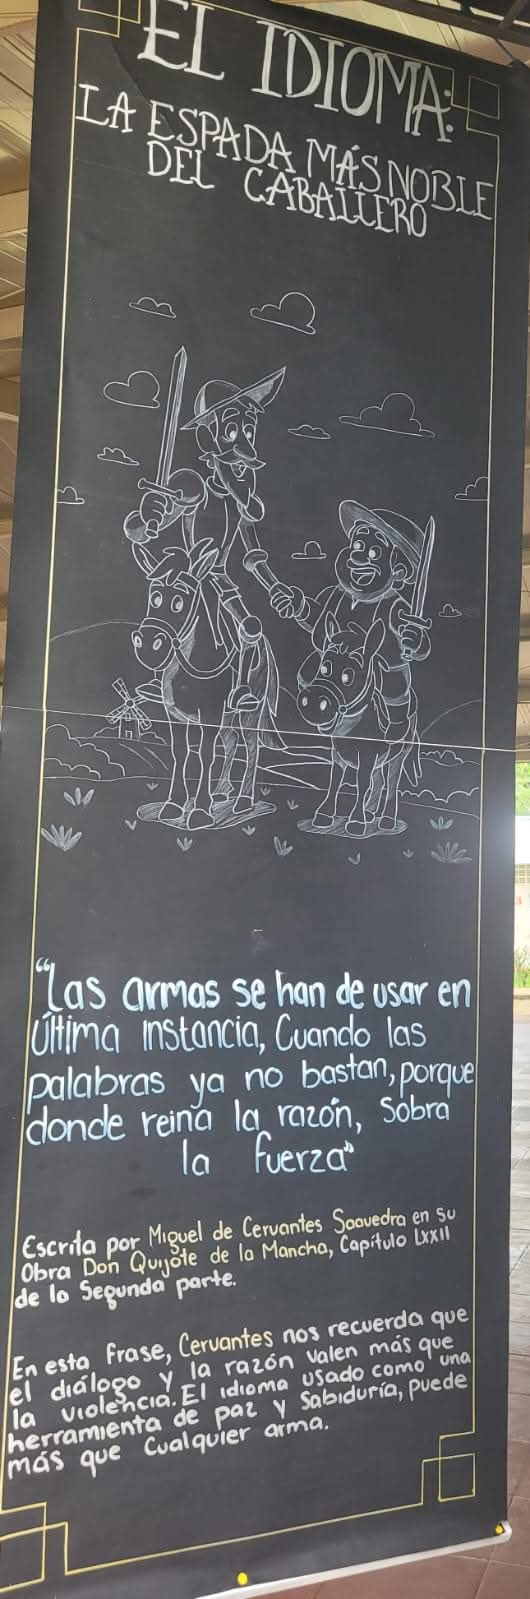 EL IDIOMA:
LA ESPADA MÁS NOBLE
DEL CABALLERO
“Las armas se han de usar en
Última instancia, Cuando las
palabras ya no bastan, porque
donde reina la razón, Sobra
la fuerza”
Escrita por Miguel de Cervantes Saavedra en su
Obra Don Quijote de la Mancha, Capítulo LXXII
de la Segunda parte.
En esta frase, Cervantes nos recuerda que
el diálogo y la razón valen más que
la violencia. El idioma usado como una
herramienta de paz y sabiduría, puede
más que cualquier arma.